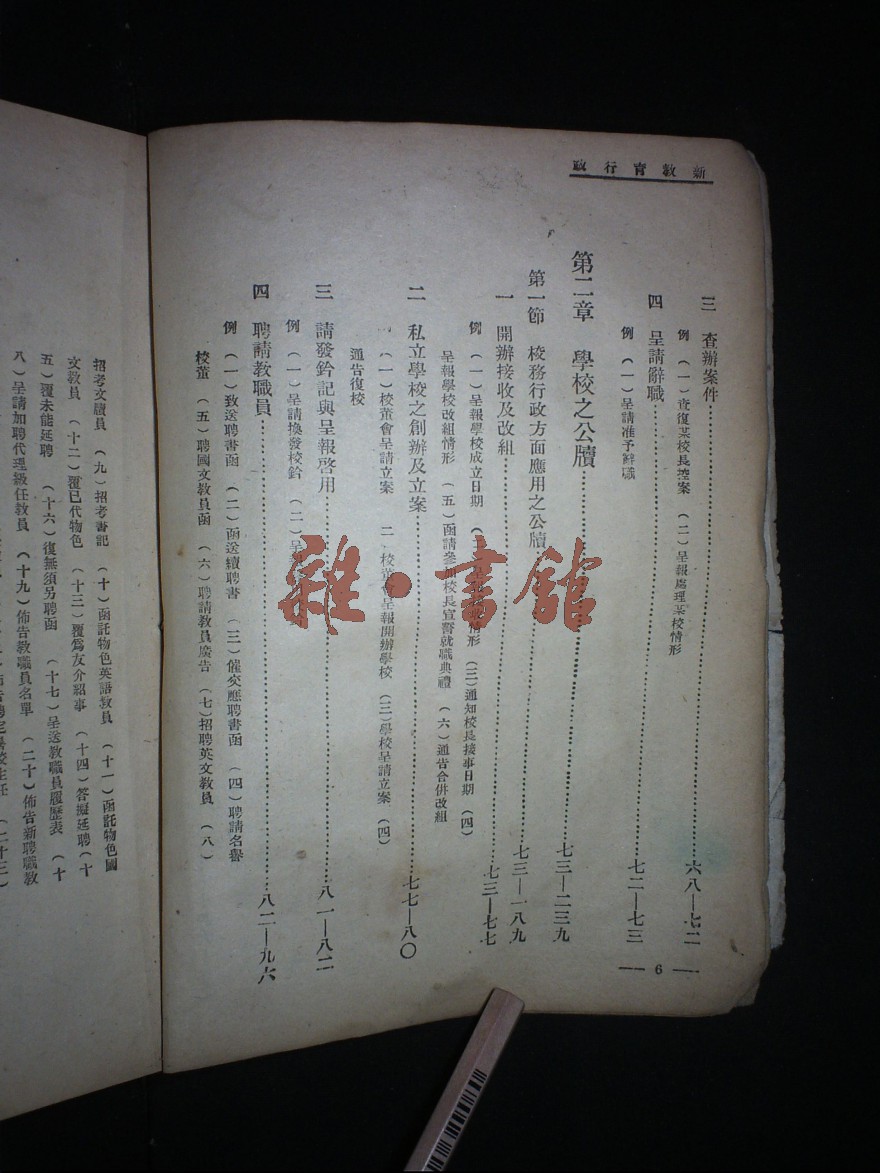 新教育行政
三　查辦案件………六八—七二
例　（一）查復某校長控案　（二）呈報處理某校情形
四　呈請辭職………七二—七三
例　（一）呈請准予辭職
第二章　學校之公牘………七三—二三九
第一節　校務行政方面應用之公牘………七三—一八九
一　開辦接收及改組………七三—七七
例　（一）呈報學校成立日期　情形　（三）通知校長接事日期　（四）
呈報學校改組情形　（五）函請參加校長宣誓就職典禮　（六）通告合併改組
二　私立學校之創辦及立案………七七—八〇
（一）校董會呈請立案　二　校董會呈報開辦學校　（三）學校呈請立案　（四）
通告復校
三　請發鈐記與呈報啓用………八一—八二
例　（一）呈請換發校鈐　（二）呈
四　聘請教職員………八二—九六
例　（一）致送聘書函　（二）函送續聘書　（三）催交應聘書函　（四）聘請名譽
校董　（五）聘國文教員函　（六）聘請教員廣告　（七）招聘英文教員　（八）
6
雜·書館
招考文牘員　（九）招考書記　（十）函託物色英語教員　（十一）函託物色圖
文教員　（十二）覆已代物色　（十三）覆爲友介紹事　（十四）答擬延聘　（十
五）覆未能延聘　（十六）復無須另聘函　（十七）呈送教職員履歷表　（十
八）呈請加聘代理級任教員　（十九）佈告教職員名單　（二十）佈告新聘職教